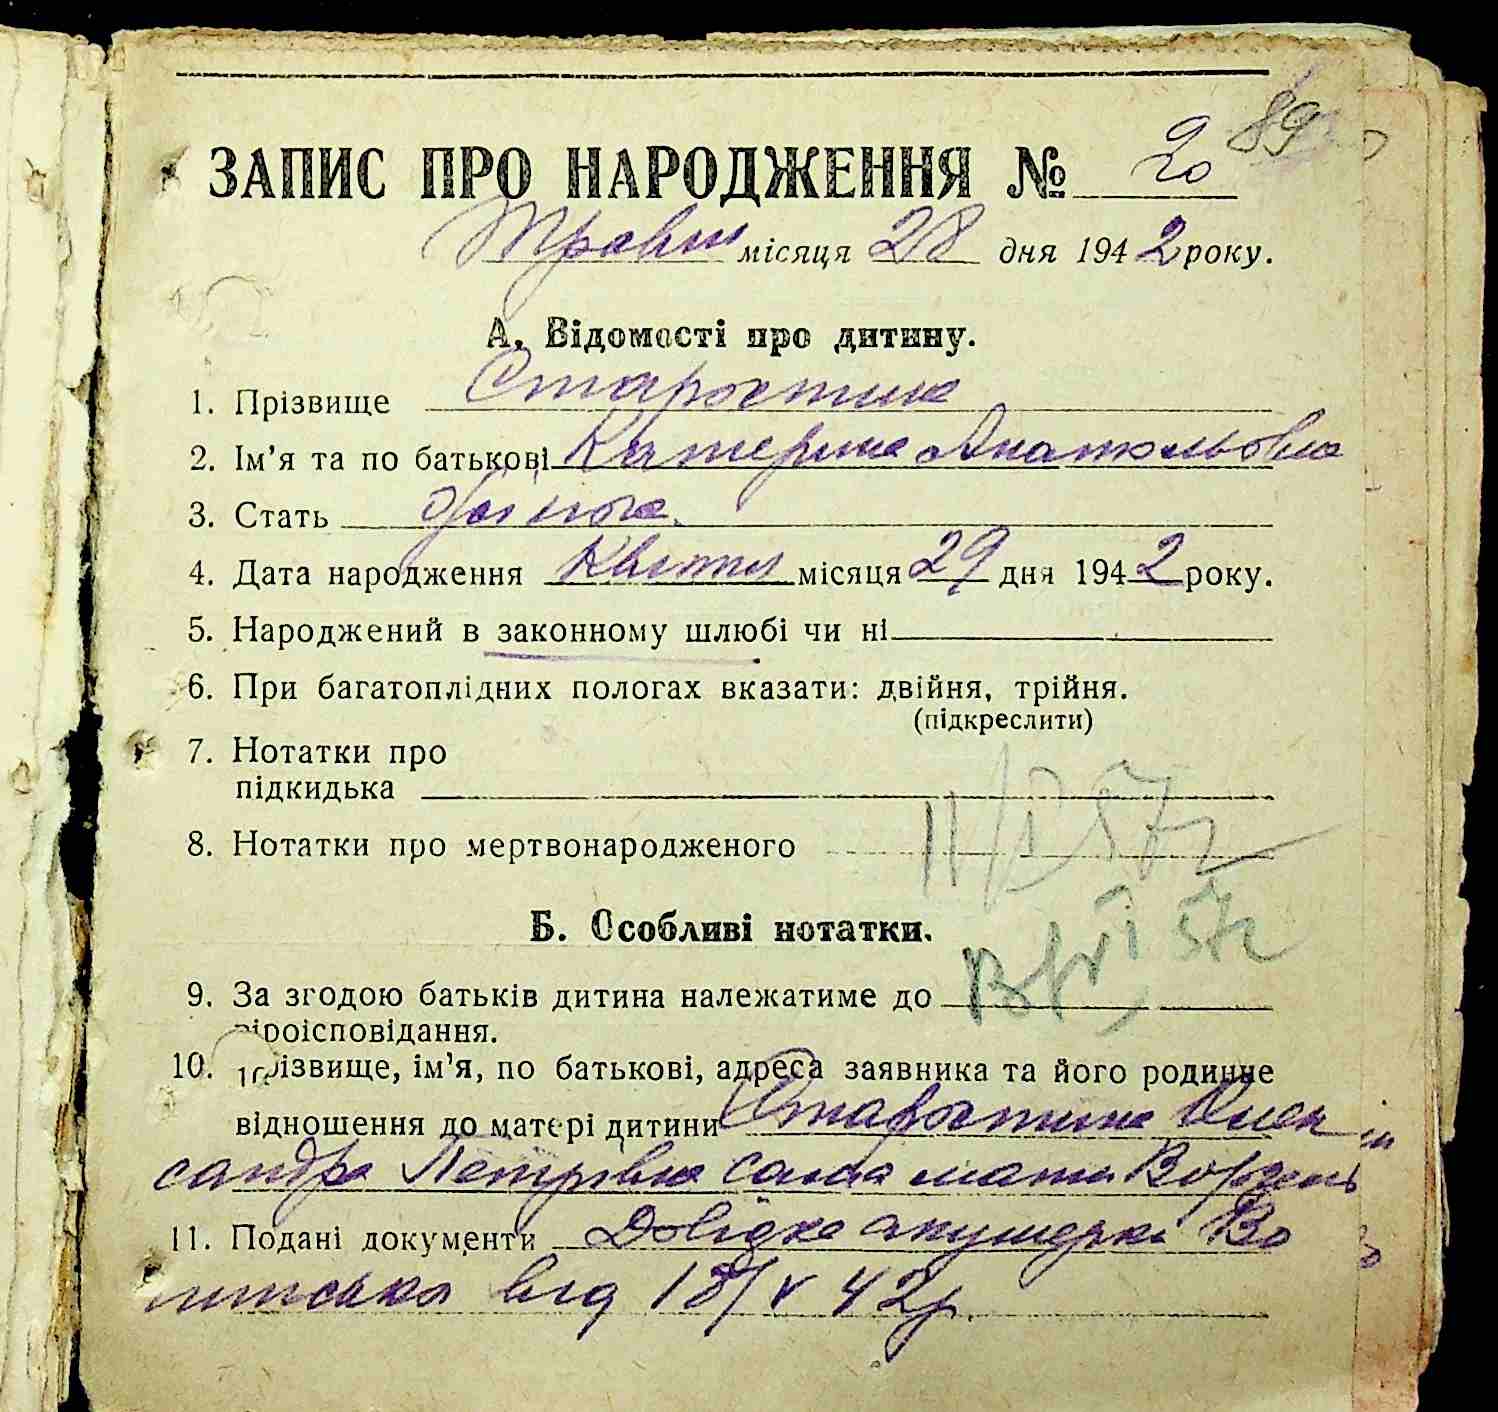 89
ЗАПИС ПРО НАРОДЖЕННЯ № 20
Травня місяця 28 дня 1942 року.
А. Відомості про дитину.
1. Прізвище Старостина
2. Ім'я та по батькові Катерина Анатольовна
3. Стать жіноча.
4. Дата народження Квітня місяця 29 дня 1942 року.
5. Народжений в законному шлюбі чи ні
6. При багатоплідних пологах вказати: двійня, трійня.
(підкреслити)
7. Нотатки про
підкидька
8. Нотатки про мертвонародженого
Б. Особливі нотатки.
9. За згодою батьків дитина належатиме до
віроісповідання.
10. Прізвище, ім'я, по батькові, адреса заявника та його родинне
відношення до матері дитини Старостина Олек
сандра Петрівна сама мати Ворзель
11. Подані документи Довідка акушерки
від 18/V 42р.